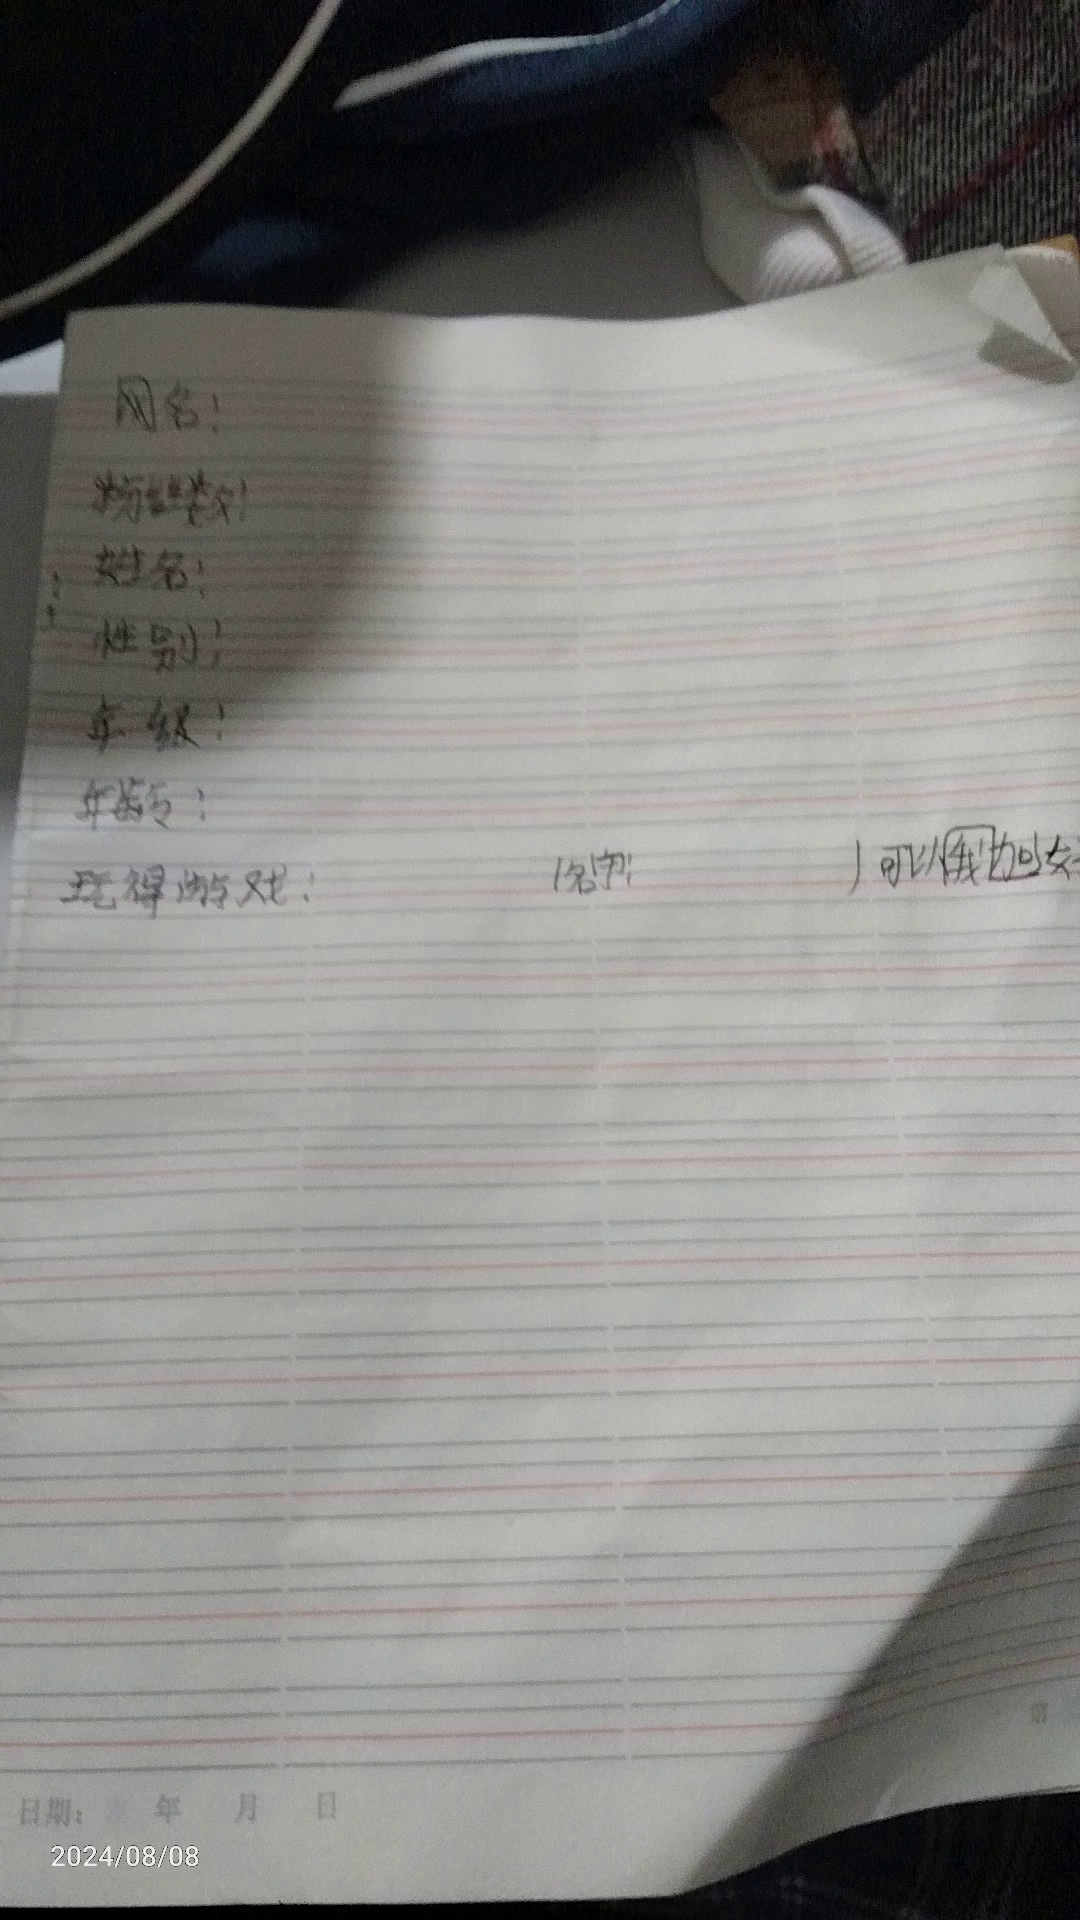 网名:
粉丝数:
姓名:
性别:
年级:
年龄:
玩得游戏: (名字: ) 可以(我)加
日期: 年 月 日
2024/08/08